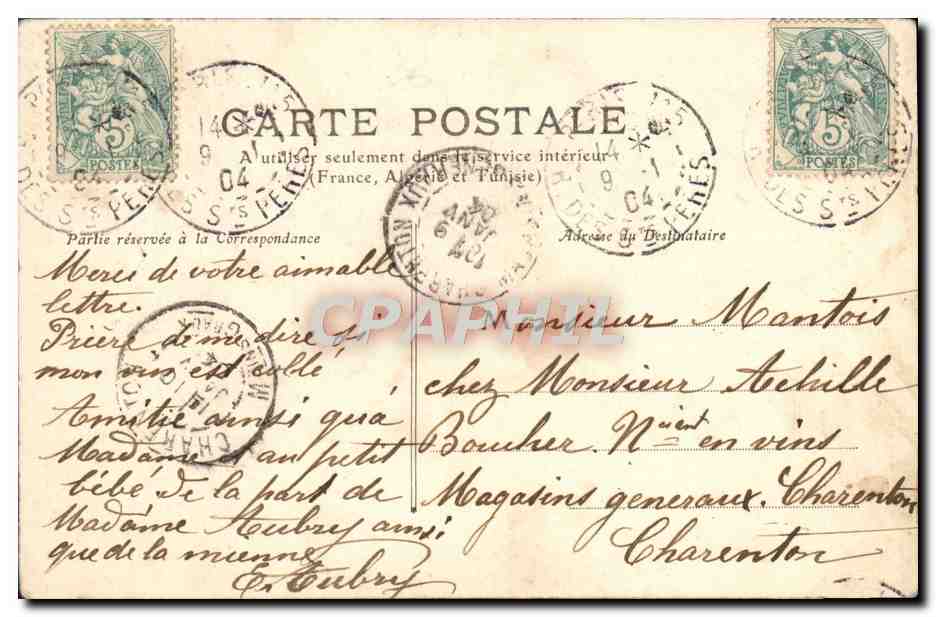 CARTE POSTALE
A utiliser seulement dans le service intérieur
(France, Algérie et Tunisie)
Partie réservée à la Correspondance
Adresse du Destinataire
5c
POSTES
5c
POSTES
14
9 -1
04
DES Sts PERES
14
9 -1
04
DES Sts PERES
CHARENTON
JANV
04
CPAPHIL
Merci de votre aimable
lettre.
Prière de me dire si
mon vin est collé
Amitié ainsi qu'à
Madame et au petit
bébé de la part de
Madame Aubry ainsi
que de la mienne
E. Aubry
Monsieur Mantois
chez Monsieur Achille
Boucher. Nciant en vins
Magasins generaux. Charenton
Charenton